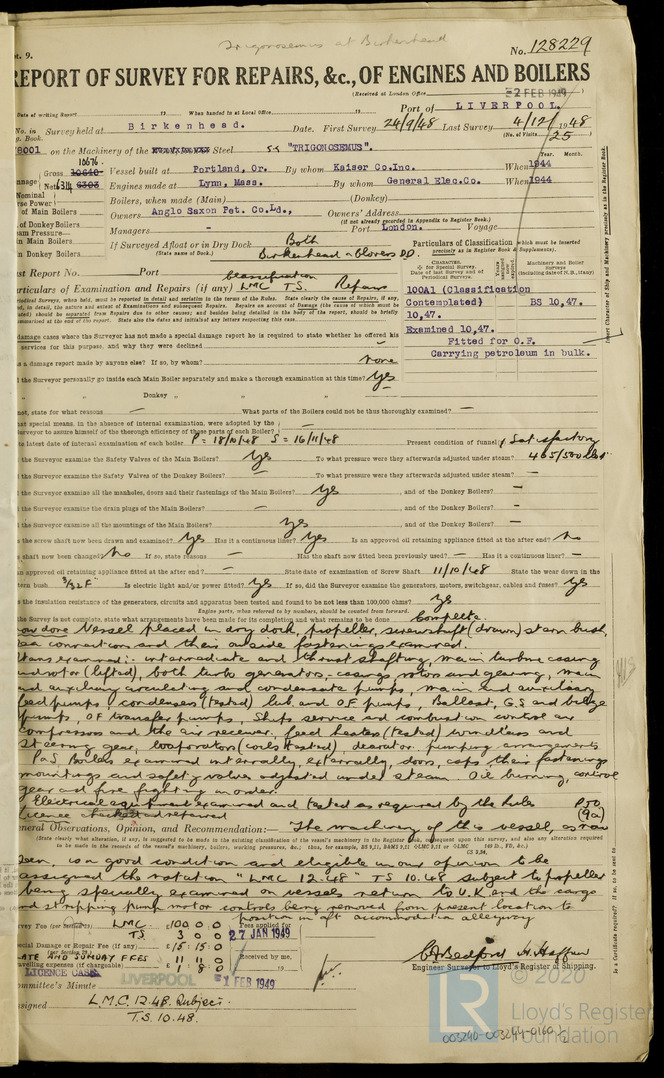 Trigonosemus at Birkenhead
pt. 9.
No. 128229
REPORT OF SURVEY FOR REPAIRS, &c., OF ENGINES AND BOILERS
(Received at London Office 22 FEB 1949)
Date of writing Report 19 When handed in at Local Office 19 Port of LIVERPOOL.
No. in Survey held at Birkenhead. Date. First Survey 24/9/48 Last Survey 4/12/1948
g. Book. (No. of Visits 25)
78001 on the Machinery of the Steel SS "TRIGONOSEMUS".
Year. Month.
10676
Gross 10640 Vessel built at Portland, Or. By whom Kaiser Co.Inc. When 1944
nnage Net 6314 6303 Engines made at Lynn, Mass. By whom General Elec.Co. When 1944
Nominal
rse Power Boilers, when made (Main) (Donkey)
of Main Boilers Owners Anglo Saxon Pet. Co.Ld., Owners' Address
(if not already recorded in Appendix to Register Book.)
of Donkey Boilers Managers - Port London. Voyage
eam Pressure—
in Main Boilers If Surveyed Afloat or in Dry Dock Both
in Donkey Boilers (State name of Dock.) Birkenhead & Clovers DD.
Particulars of Classification (which must be inserted
precisely as in Register Book & Supplements).
CHARACTER.
✠ for Special Survey.
Date of last Survey and of
Periodical Surveys.
Machinery and Boiler
Surveys
(including date of N.B., if any)
100A1 (Classification
Contemplated) BS 10,47.
10,47.
Examined 10,47.
Fitted for O.F.
Carrying petroleum in bulk.
Insert Character of Ship and Machinery precisely as in the Register Book.
st Report No. Port
Classification
articulars of Examination and Repairs (if any) LMC TS. Repairs
damage cases where the Surveyor has not made a special damage report he is required to state whether he offered his
services for this purpose, and why they were declined
a damage report made by anyone else? If so, by whom? None
d the Surveyor personally go inside each Main Boiler separately and make a thorough examination at this time? Yes
" Donkey " " "
not, state for what reasons — What parts of the Boilers could not be thoroughly examined? —
hat special means, in the absence of internal examination, were adopted by the
Surveyor to assure himself of the thorough efficiency of those parts of each Boiler? —
te latest date of internal examination of each boiler P = 18/10/48 S = 16/11/48 Present condition of funnel, Satisfactory
d the Surveyor examine the Safety Valves of the Main Boiler? Yes To what pressure were they afterwards adjusted under steam? 465/500 lbs.
d the Surveyor examine the Safety Valves of the Donkey Boiler? — To what pressure were they afterwards adjusted under steam? —
d the Surveyor examine all the manholes, doors and their fastenings of the Main Boilers? Yes , and of the Donkey Boilers? —
d the Surveyor examine the drain plugs of the Main Boilers? — , and of the Donkey Boilers? —
d the Surveyor examine all the mountings of the Main Boilers? Yes , and of the Donkey Boilers? —
s the screw shaft now been drawn and examined? Yes Has it a continuous liner? Yes Is an approved oil retaining appliance fitted at the after end? No
s shaft now been changed? No If so, state reasons — Has the shaft now fitted been previously used? — Has it a continuous liner? —
n approved oil retaining appliance fitted at the after end? — State date of examination of Screw Shaft 11/10/48 State the wear down in the
tern bush 3/32 F Is electric light and/or power fitted? Yes If so, did the Surveyor examine the generators, motors, switchgear, cables and fuses? Yes
s the insulation resistance of the generators, circuits and apparatus been tested and found to be not less than 100,000 ohms? Yes
Engine parts, when referred to by numbers, should be counted from forward.
the Survey is not complete, state what arrangements have been made for its completion and what remains to be done Complete
ow done Vessel placed in dry dock, propeller, screwshaft (drawn) stern bush,
sea connections and their outside fastenings examined.
Items examined:- intermediate and thrust shafting, main turbine casing
and rotor (lifted), both turbo generators, casings, rotors and gearing, main
and auxiliary circulating and condensate pumps, main and auxiliary
feed pumps, condensers (tested) lub and O.F pumps, Ballast, G.S and bilge
pumps, OF transfer pumps, Ships service and combustion control air
compressors and the air receiver, feed heaters (tested) windlass and
steering gear, evaporators (coils tested), deaerator, pumping arrangements
P & S. Boilers examined internally, externally, doors, caps their fastenings
mountings and safety valves adjusted under steam. Oil burning, control
gear and fire fighting in order.
Electrical equipment examined and tested as required by the Rules PTO
licence checked and repaired (9a)
eneral Observations, Opinion, and Recommendation:— The machinery of this vessel, as now
seen, is in good condition and eligible in our opinion to be
assigned the notation "LMC 12.48" TS 10.48 subject to propeller
being specially examined on vessels return to U.K. and the cargo
and stripping pump motor controls being removed from present location to
position in aft accommodation alleyway
Survey Fee LMC £100 0 0 Fees applied for
TS 3 0 0 27 JAN 1949
Special Damage or Repair Fee (if any) £15 : 15 : 0
LATE AND SUNDAY FEES 11 11 0 Received by me,
Travelling expenses (if chargeable) £1 : 8 : 0 19
LICENCE CASE
C. Bedford H. Heffer
Engineer Surveyor to Lloyd's Register of Shipping.
ommittee's Minute LIVERPOOL 1 FEB 1949
ssigned L.M.C. 12.48. Subject.
T.S. 10.48.
Is a Certificate required? If so, to be sent to
© 2020
LR
Lloyd's Register
Foundation
003240-003244-0160 1/2